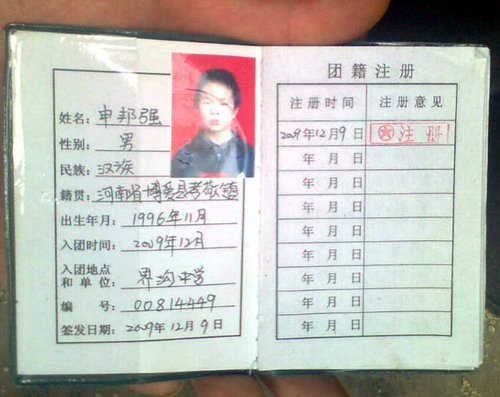 姓名：申邦强
性别：男
民族：汉族
籍贯：河南省博爱县孝敬镇
出生年月：1996年11月
入团时间：2009年12月
入团地点
和单位：界沟中学
编号：00814449
签发日期：2009年12月9日
团籍注册
注册时间 注册意见
2009年12月9日 注册
年 月 日
年 月 日
年 月 日
年 月 日
年 月 日
年 月 日
年 月 日
年 月 日